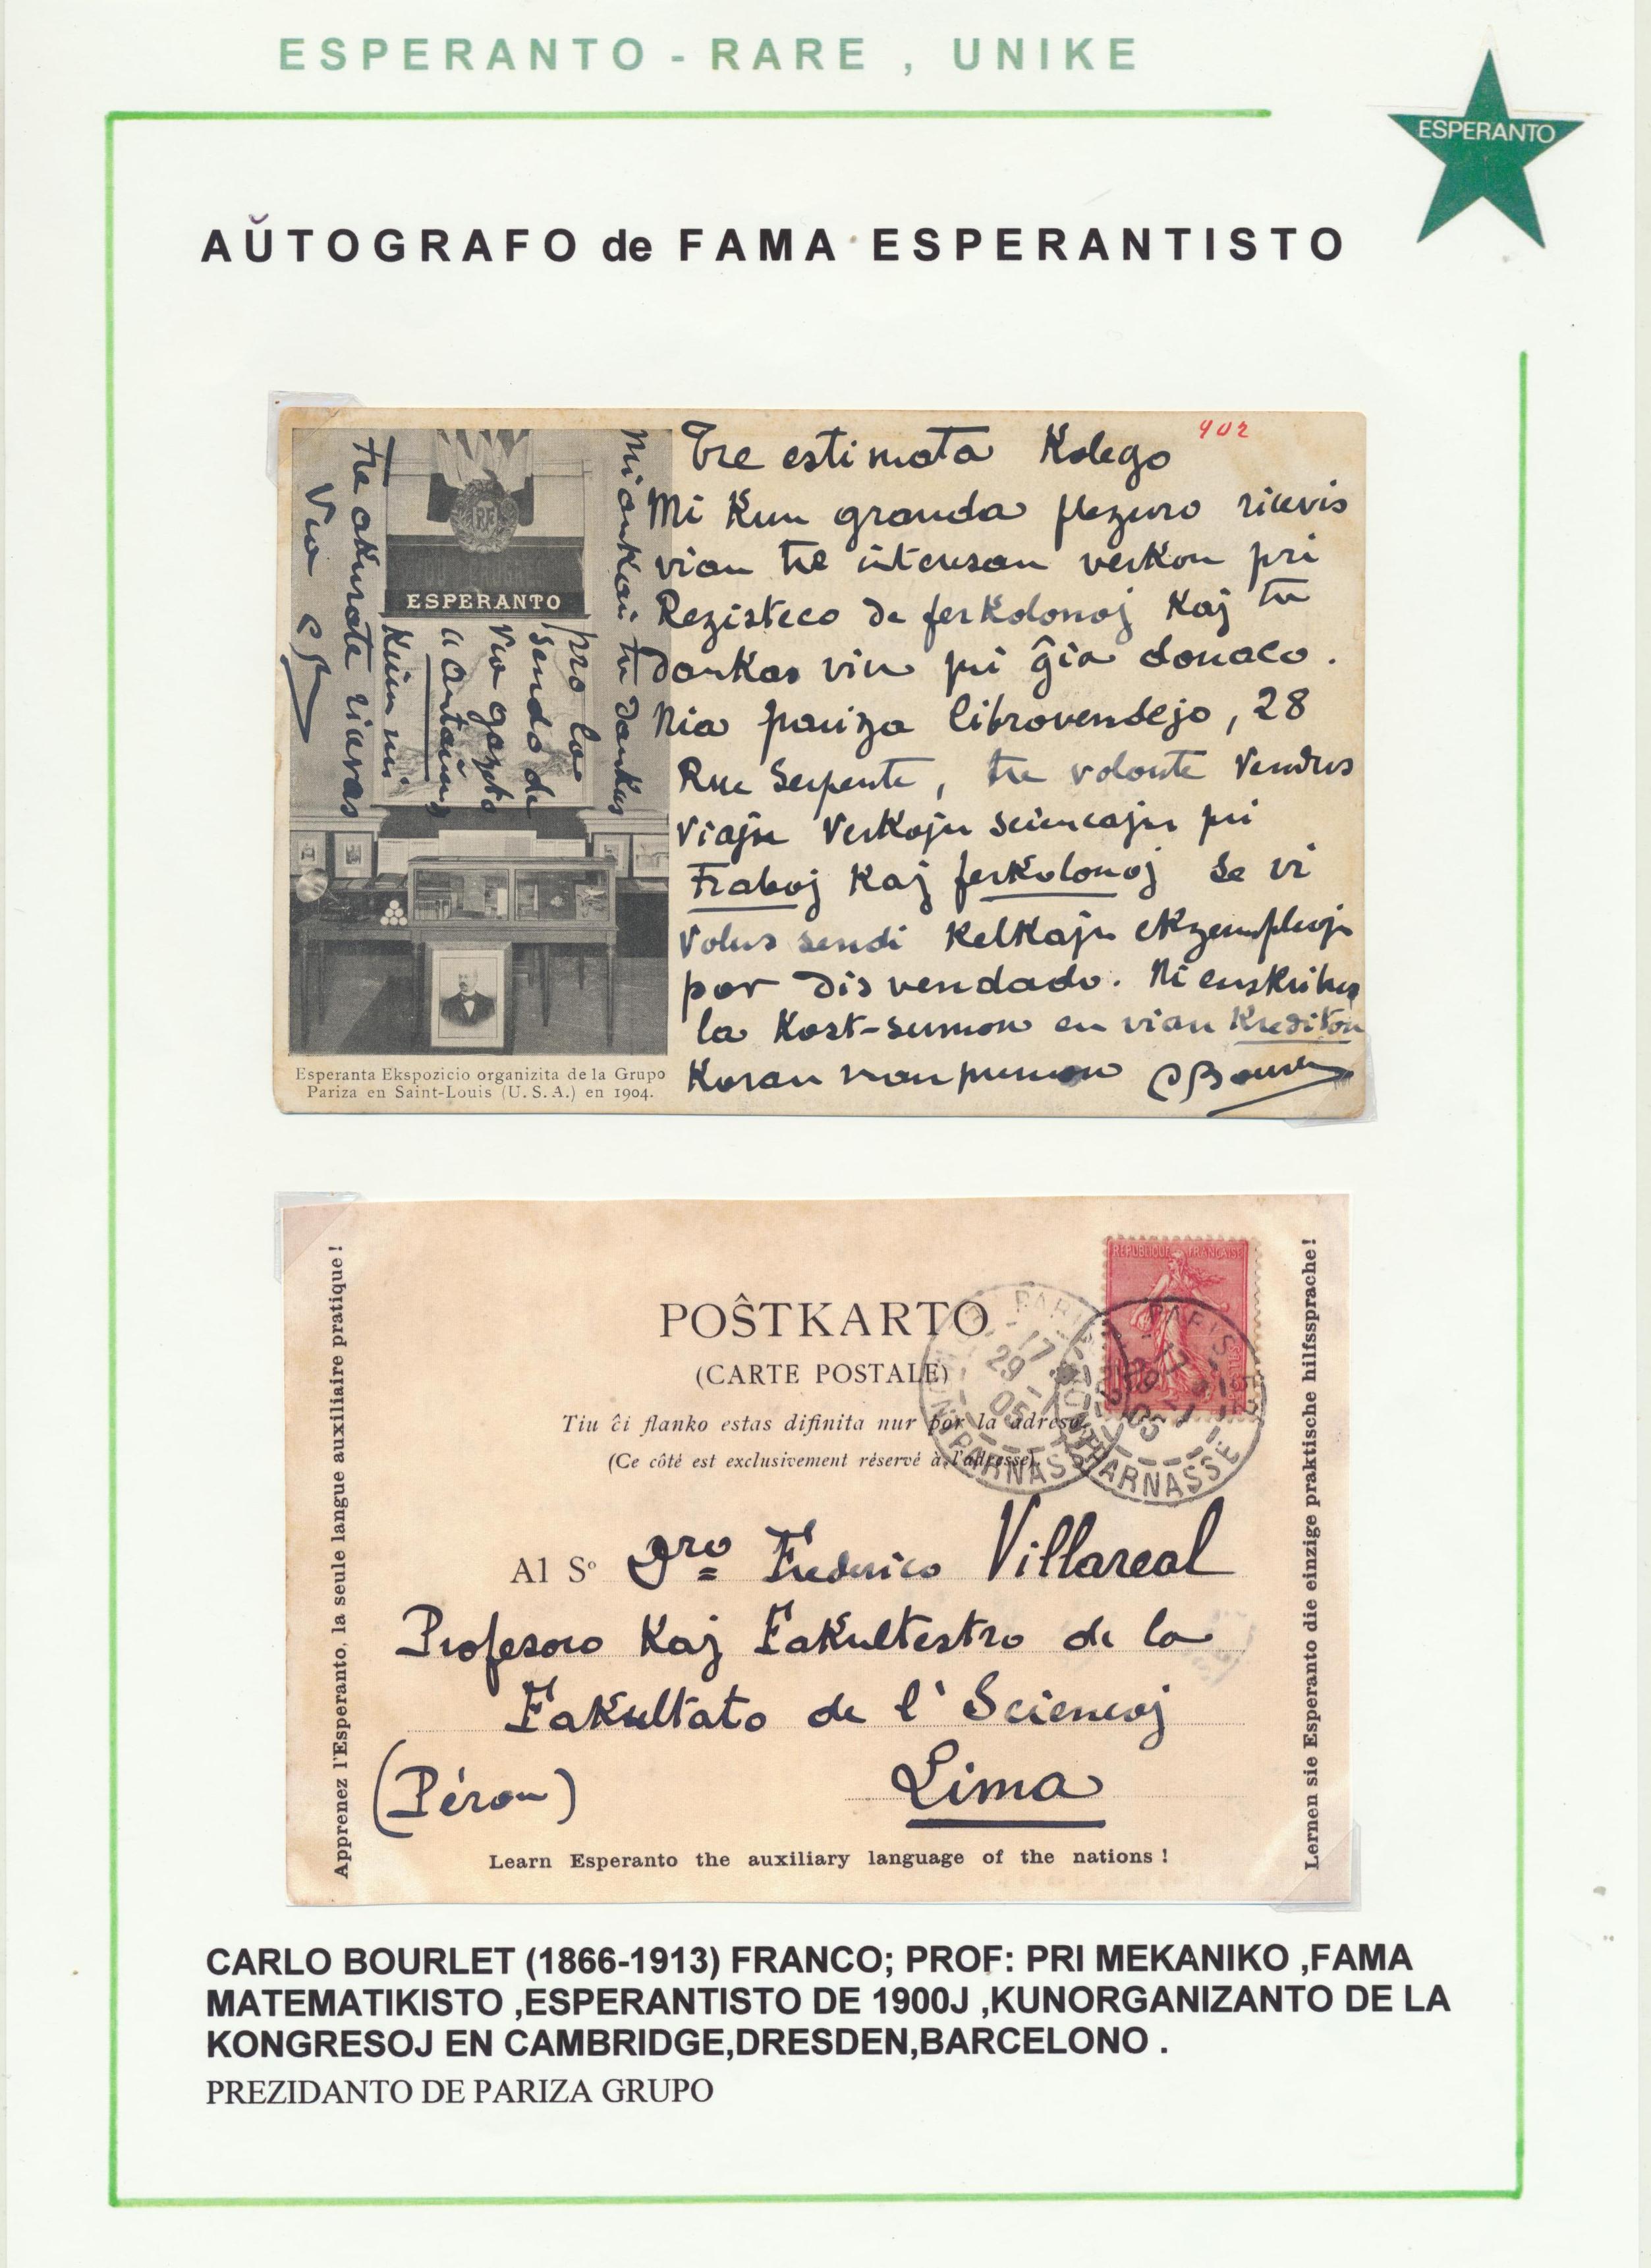 ESPERANTO - RARE , UNIKE
ESPERANTO
AŬTOGRAFO de FAMA ESPERANTISTO
902
Tre estimata Kolego
Mi Kun granda plezuro ricevis
vian tre interesan verkon pri
Rezisteco de ferkolonoj Kaj tre
dankas vin pri ĝia donaco.
Nia pariza librovendejo, 28
Rue Serpente, tre volonte Vendus
Viajn Verkojn sciencajn pri
Traboj Kaj ferkolonoj se vi
Volus sendi Kelkajn ekzemplerojn
por disvendado. Ni enskribus
la Kost-sumon en vian Krediton
Koran manpremon CBourlet
Mi ankaŭ tre dankas
pro la
sendo de
Via gazeto
"Antaŭen
Kiun mi
tre akurate ricevas
Via CB
RF
ESPERANTO
Esperanta Ekspozicio organizita de la Grupo
Pariza en Saint-Louis (U.S.A.) en 1904.
Apprenez l'Esperanto, la seule langue auxiliaire pratique!
REPUBLIQUE FRANÇAISE
PARIS
17
29 - 1
05
MONTPARNASSE
PARIS
17
29 - 1
05
MONTPARNASSE
POŜTKARTO
(CARTE POSTALE)
Tiu ĉi flanko estas difinita nur por la adreso.
(Ce côté est exclusivement réservé à l'adresse).
Al Sº Dro Frederico Villareal
Profesoro Kaj Fakultestro de la
Fakultato de l' Sciencoj
(Pérou) Lima
Learn Esperanto the auxiliary language of the nations!
Lernen sie Esperanto die einzige praktische hilfssprache!
CARLO BOURLET (1866-1913) FRANCO; PROF: PRI MEKANIKO ,FAMA
MATEMATIKISTO ,ESPERANTISTO DE 1900J ,KUNORGANIZANTO DE LA
KONGRESOJ EN CAMBRIDGE,DRESDEN,BARCELONO .
PREZIDANTO DE PARIZA GRUPO